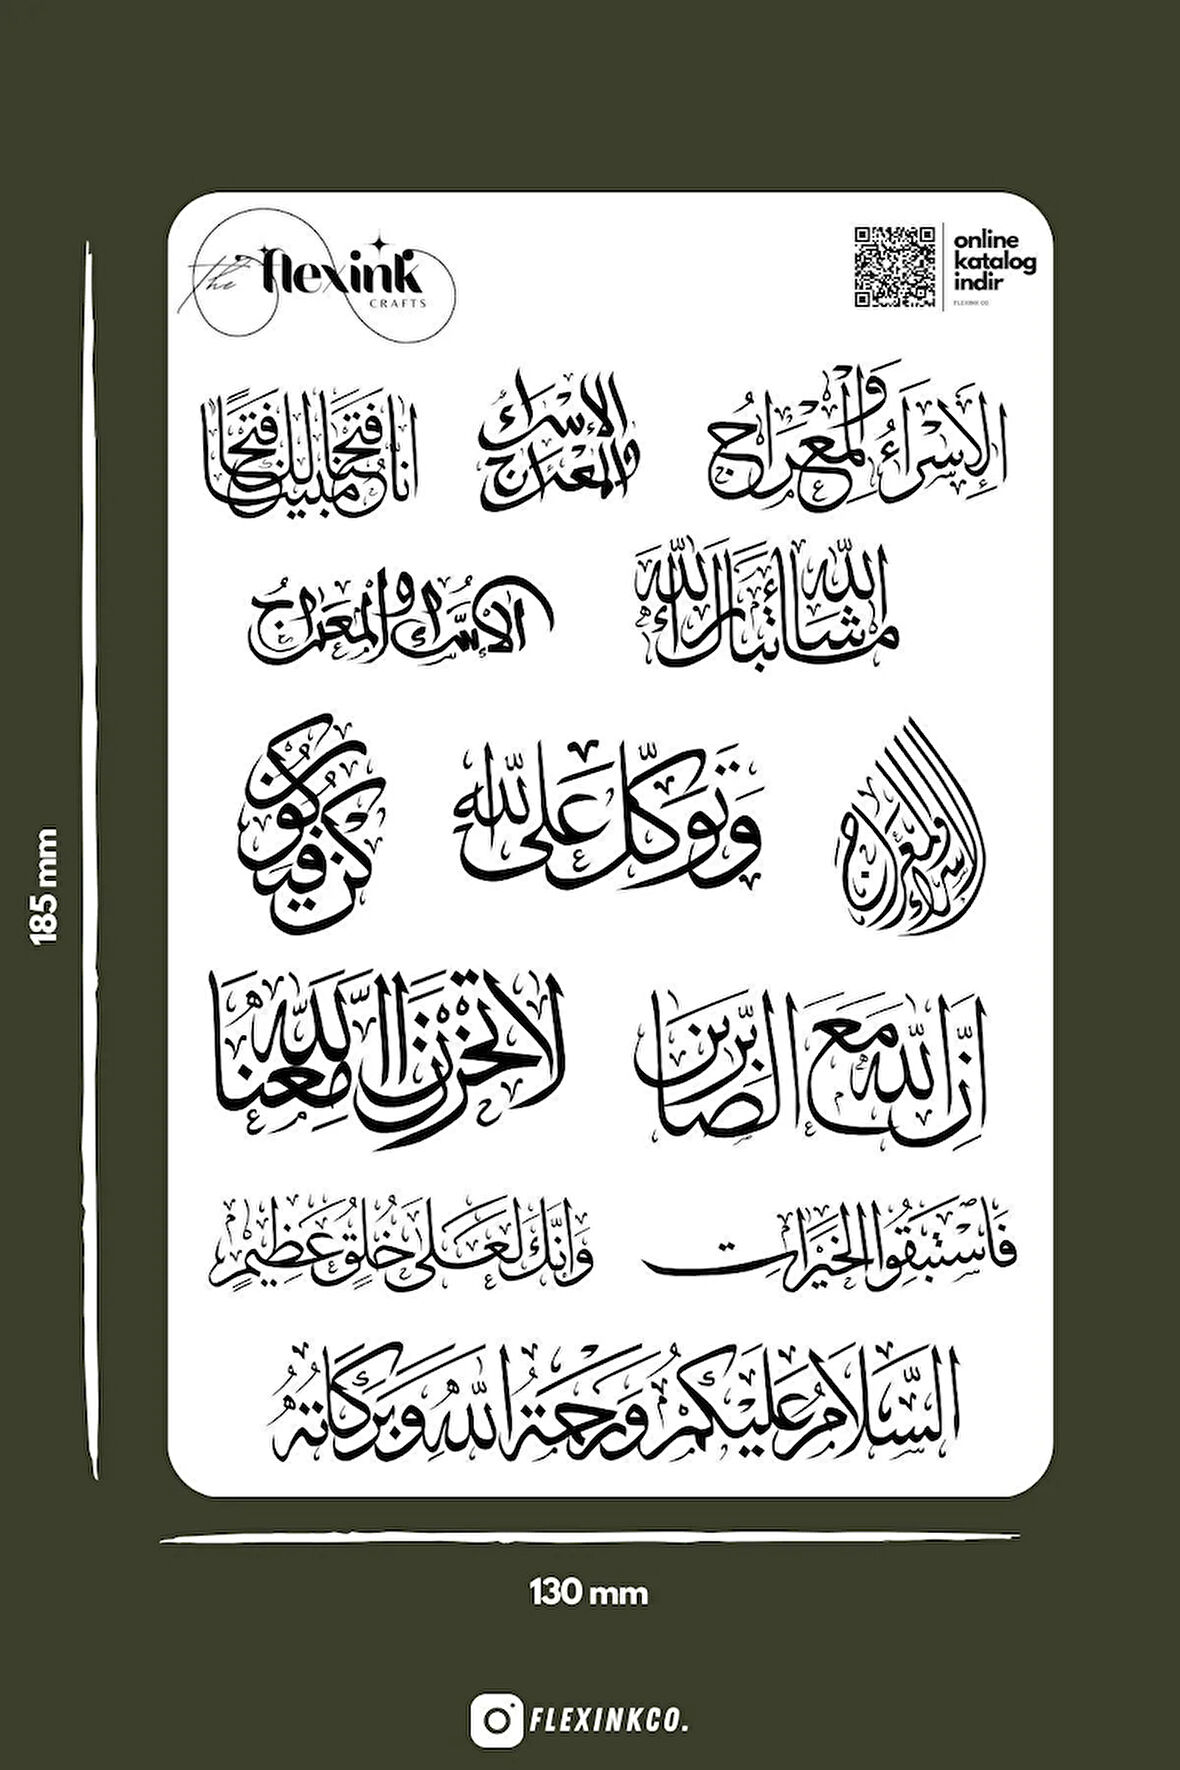 the flexink
CRAFTS
online
katalog
indir
FLEXINK CO
الإسراء والمعراج
الإسراء والمعراج
إنا فتحنا لك فتحا مبينا
ما شاء الله تبارك الله
الإسراء والمعراج
الإسراء والمعراج
وتوكل على الله
كن فيكون
إن الله مع الصابرين
لا تحزن إن الله معنا
فَاسْتَبِقُوا الخَيْرَاتِ
وَإِنَّكَ لَعَلَى خُلُقٍ عَظِيمٍ
السَّلَامُ عَلَيْكُمْ وَرَحْمَةُ اللهِ وَبَرَكَاتُهُ
185 mm
130 mm
FLEXINKCO.